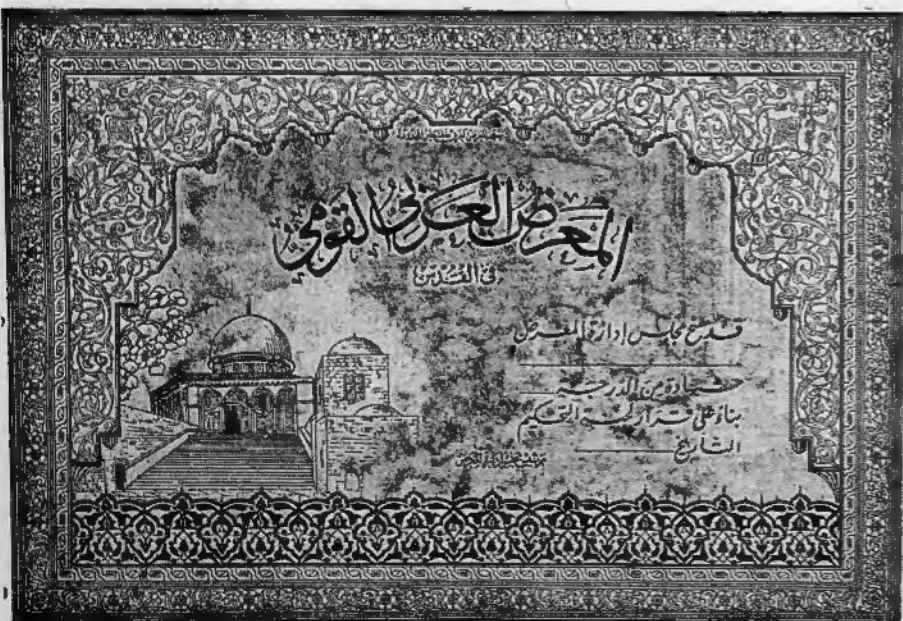 المعرض العربي القومي
في القدس
قدمنح مجلس إدارة المعرض
شهادة من الدرجة
بناءً على قرار لجنة التحكيم
التاريخ